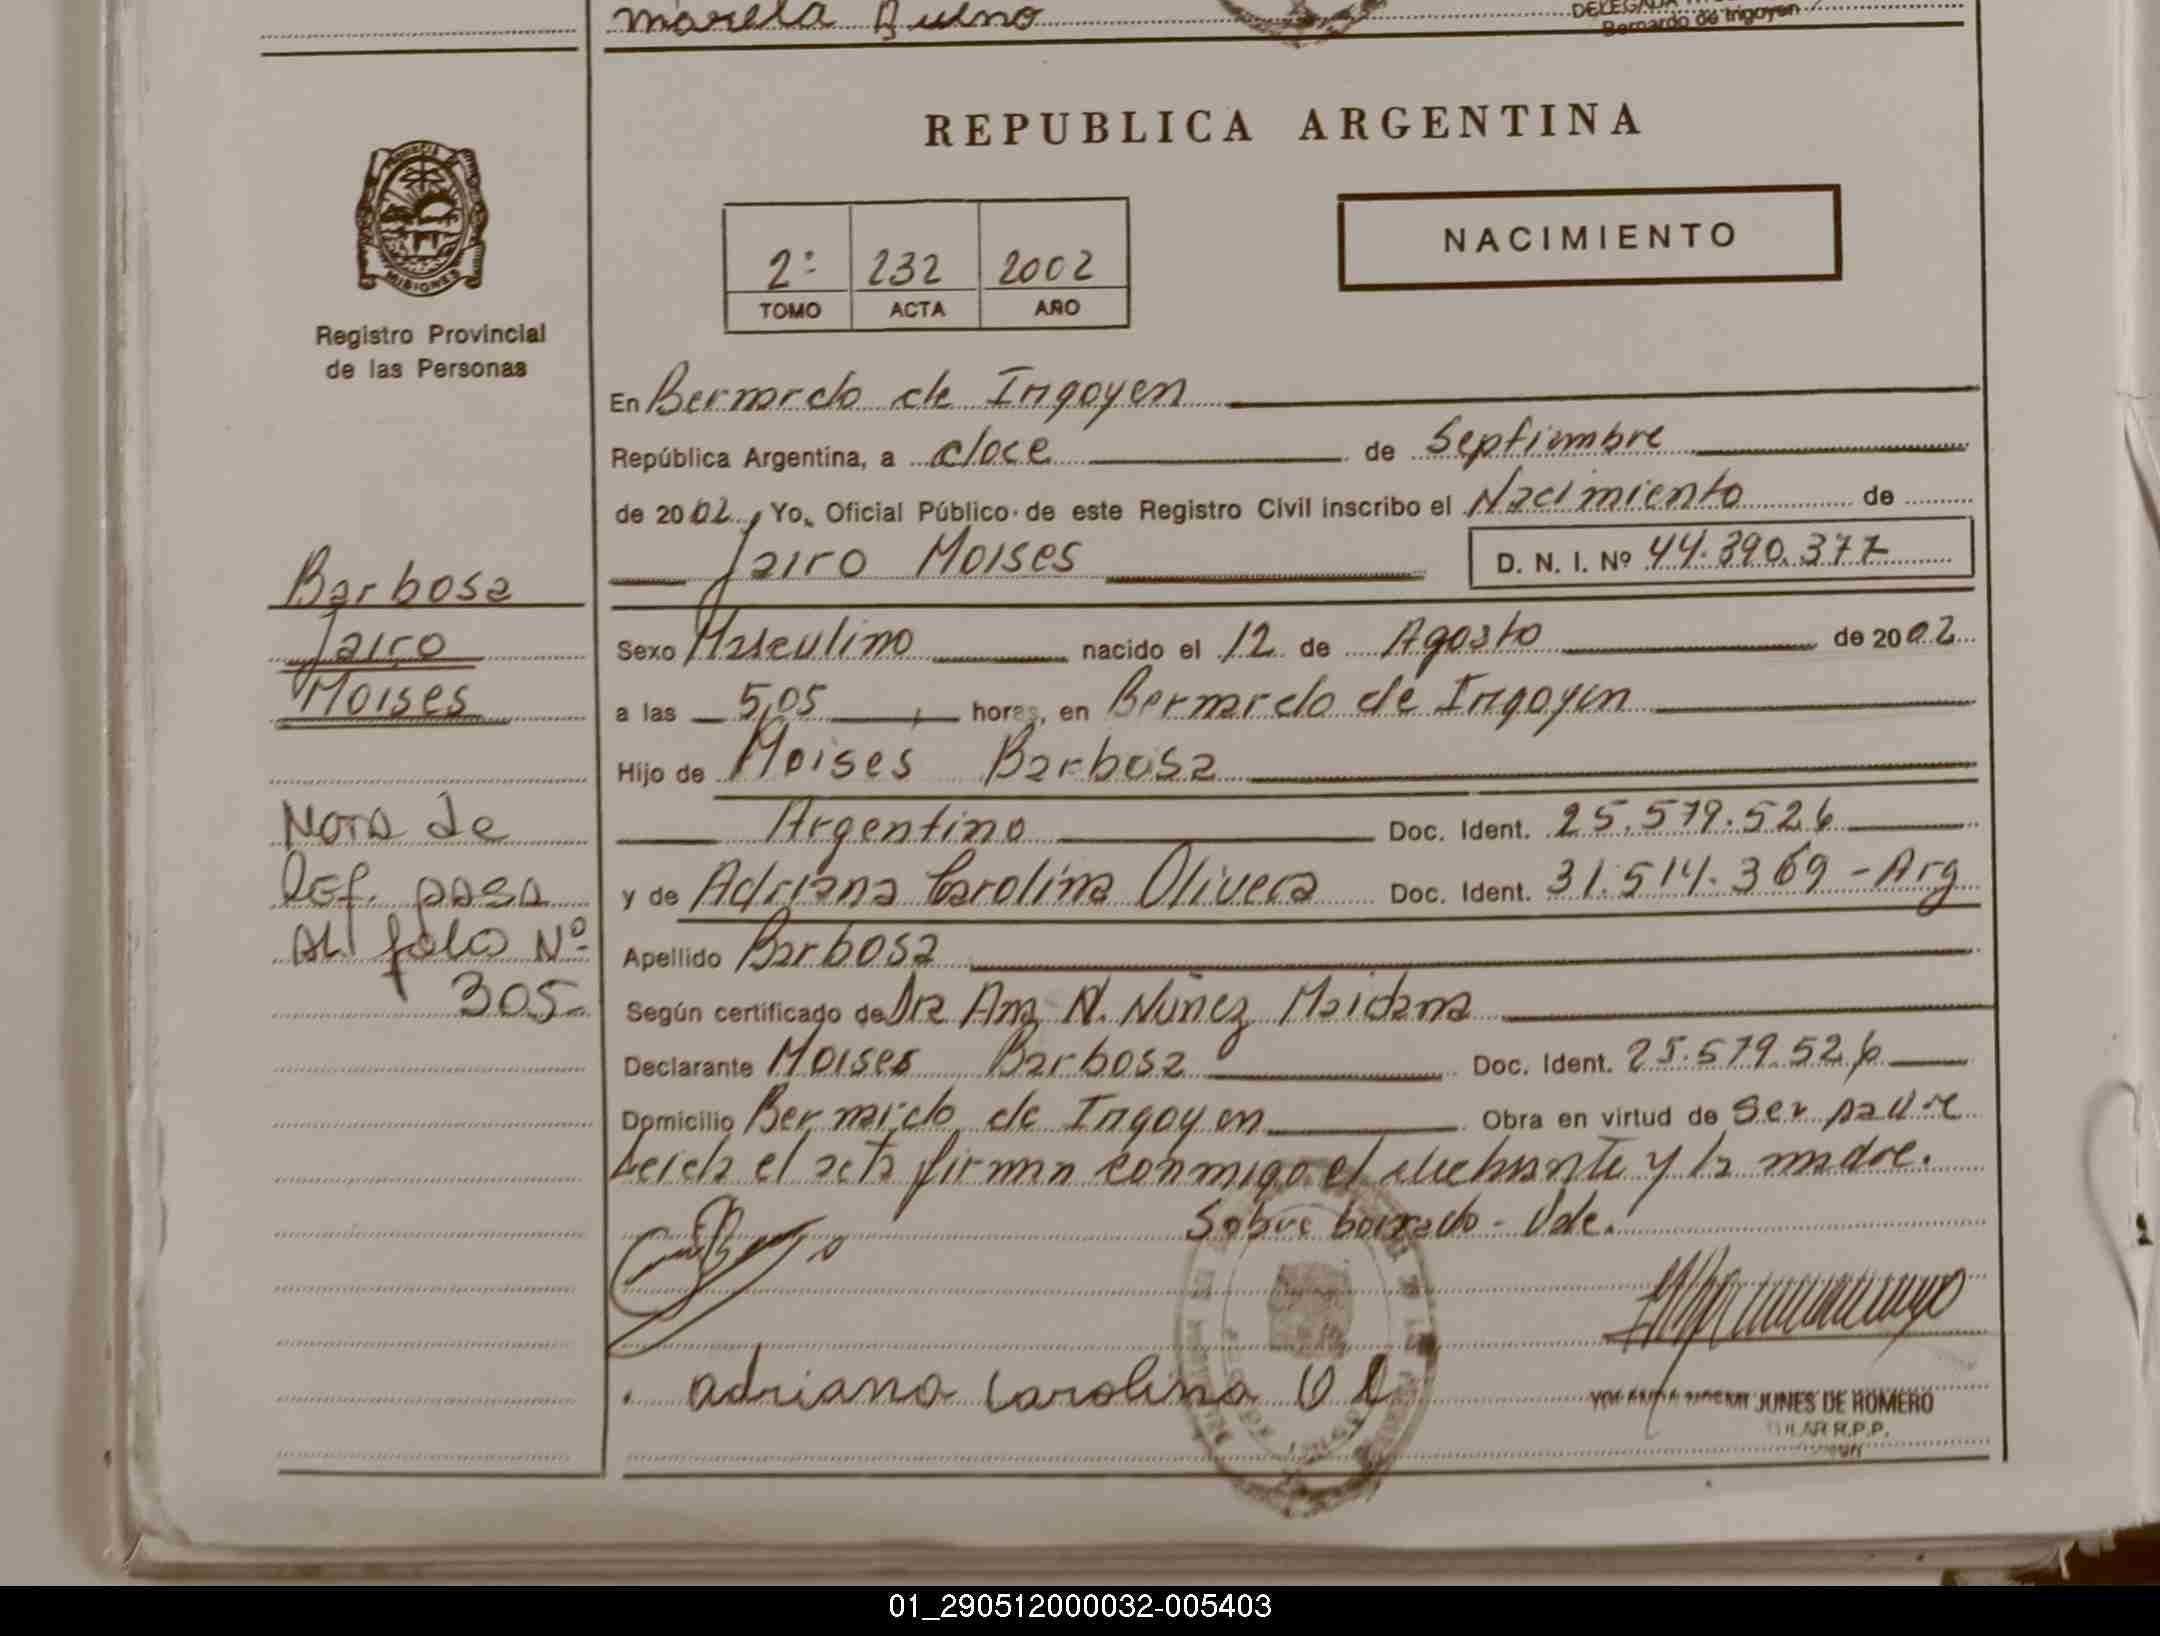 marela Bueno
Bernardo de Irigoyen
REPUBLICA ARGENTINA
PROVINCIA DE
MISIONES
Registro Provincial
de las Personas
2º 232 2002
TOMO ACTA AÑO
NACIMIENTO
En Bernardo de Irigoyen
República Argentina, a doce de Septiembre
de 2002, Yo, Oficial Público de este Registro Civil inscribo el Nacimiento de
Jairo Moises D. N. I. Nº 44.390.377
Barbosa
Jairo
Moises
Sexo Masculino nacido el 12 de Agosto de 2002
a las 5,05 horas, en Bernardo de Irigoyen
Hijo de Moises Barbosa
Argentino Doc. Ident. 25.579.526
y de Adriana Carolina Olivera Doc. Ident. 31.514.369 - Arg
Apellido Barbosa
Según certificado de Dra Ana N. Nuñez Maidana
Declarante Moises Barbosa Doc. Ident. 25.579.526
Domicilio Bernardo de Irigoyen Obra en virtud de ser padre
Leida el acta firman conmigo el declarante y la madre.
Sobre borrado - Vale.
Nota de
Ref. pasa
AL folio Nº
305-
adriana Carolina Ol
JUNES DE ROMERO
R.P.P.
01_290512000032-005403